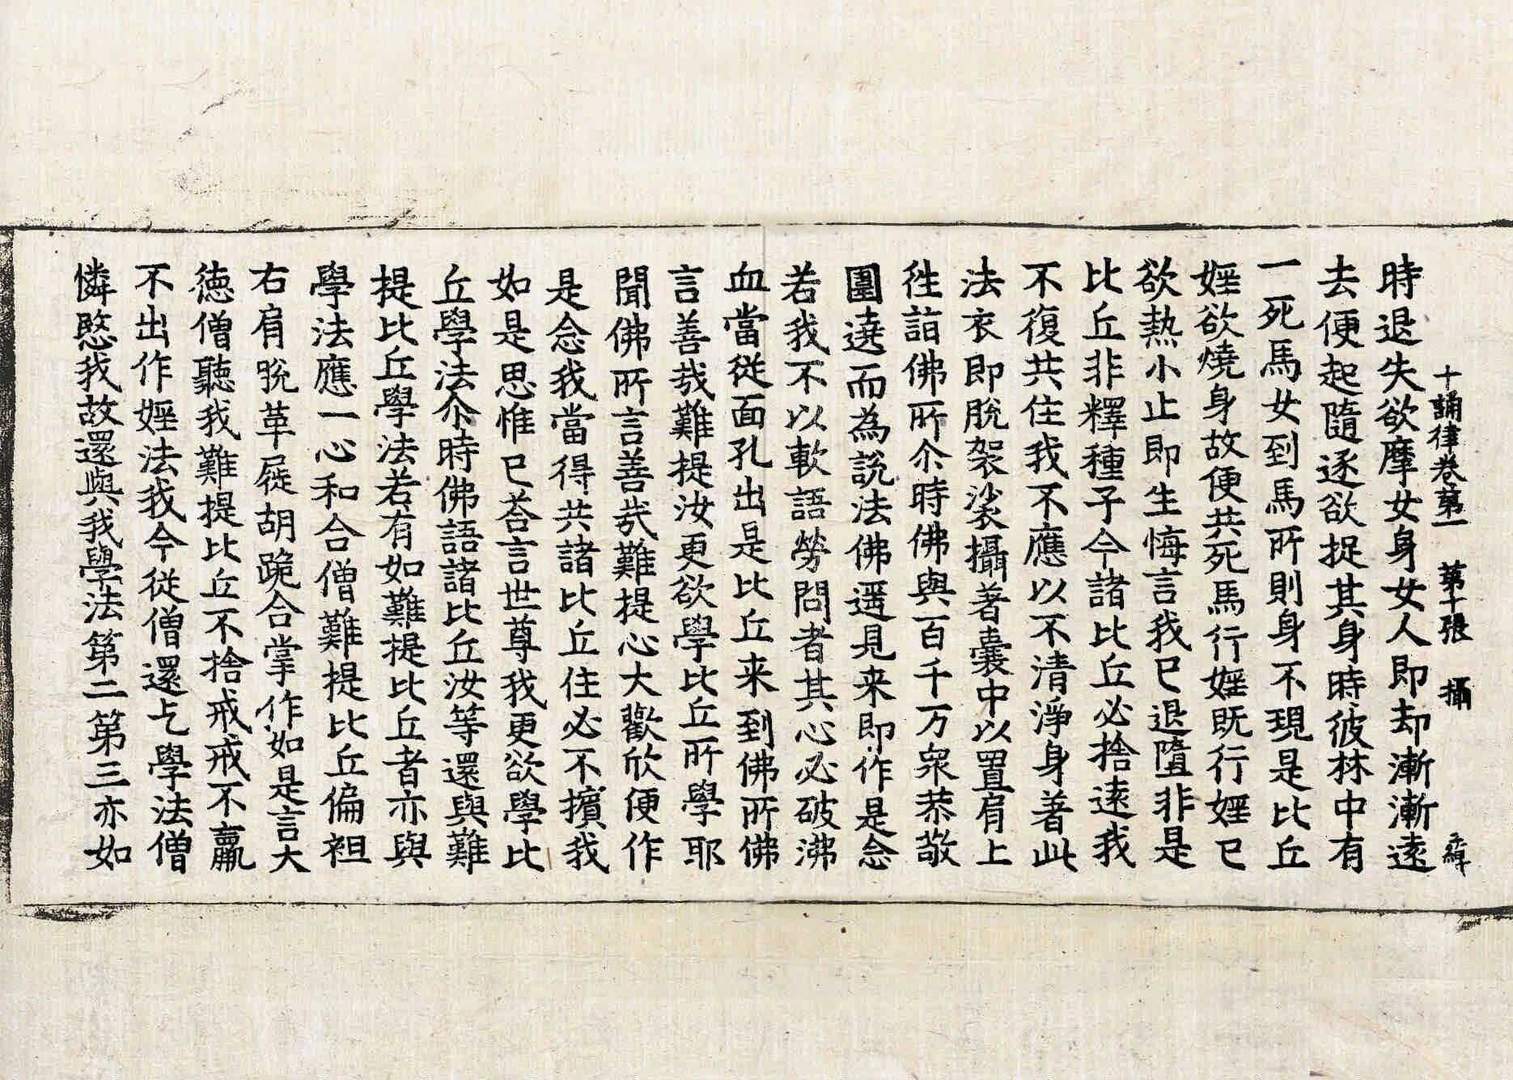 十誦律卷第一 第十張 攝
時退失欲摩女身女人即却漸漸遠
去便起隨逐欲捉其身時彼林中有
一死馬女到馬所則身不現是比丘
婬欲燒身故便共死馬行婬既行婬已
欲熱小止即生悔言我已退墮非是
比丘非釋種子今諸比丘必捨遠我
不復共住我不應以不清淨身著此
法衣即脫袈裟攝著囊中以置肩上
徃詣佛所尒時佛與百千万衆恭敬
圍遶而為說法佛遥見来即作是念
若我不以軟語勞問者其心必破沸
血當從面孔出是比丘来到佛所佛
言善哉難提汝更欲學比丘所學耶
聞佛所言善哉難提心大歡欣便作
是念我當得共諸比丘住必不擯我
如是思惟已荅言世尊我更欲學比
丘學法尒時佛語諸比丘汝等還與難
提比丘學法若有如難提比丘者亦與
學法應一心和合僧難提比丘偏袒
右肩脫革屣胡跪合掌作如是言大
徳僧聽我難提比丘不捨戒戒不羸
不出作婬法我今從僧還乞學法僧
憐愍我故還與我學法第二第三亦如